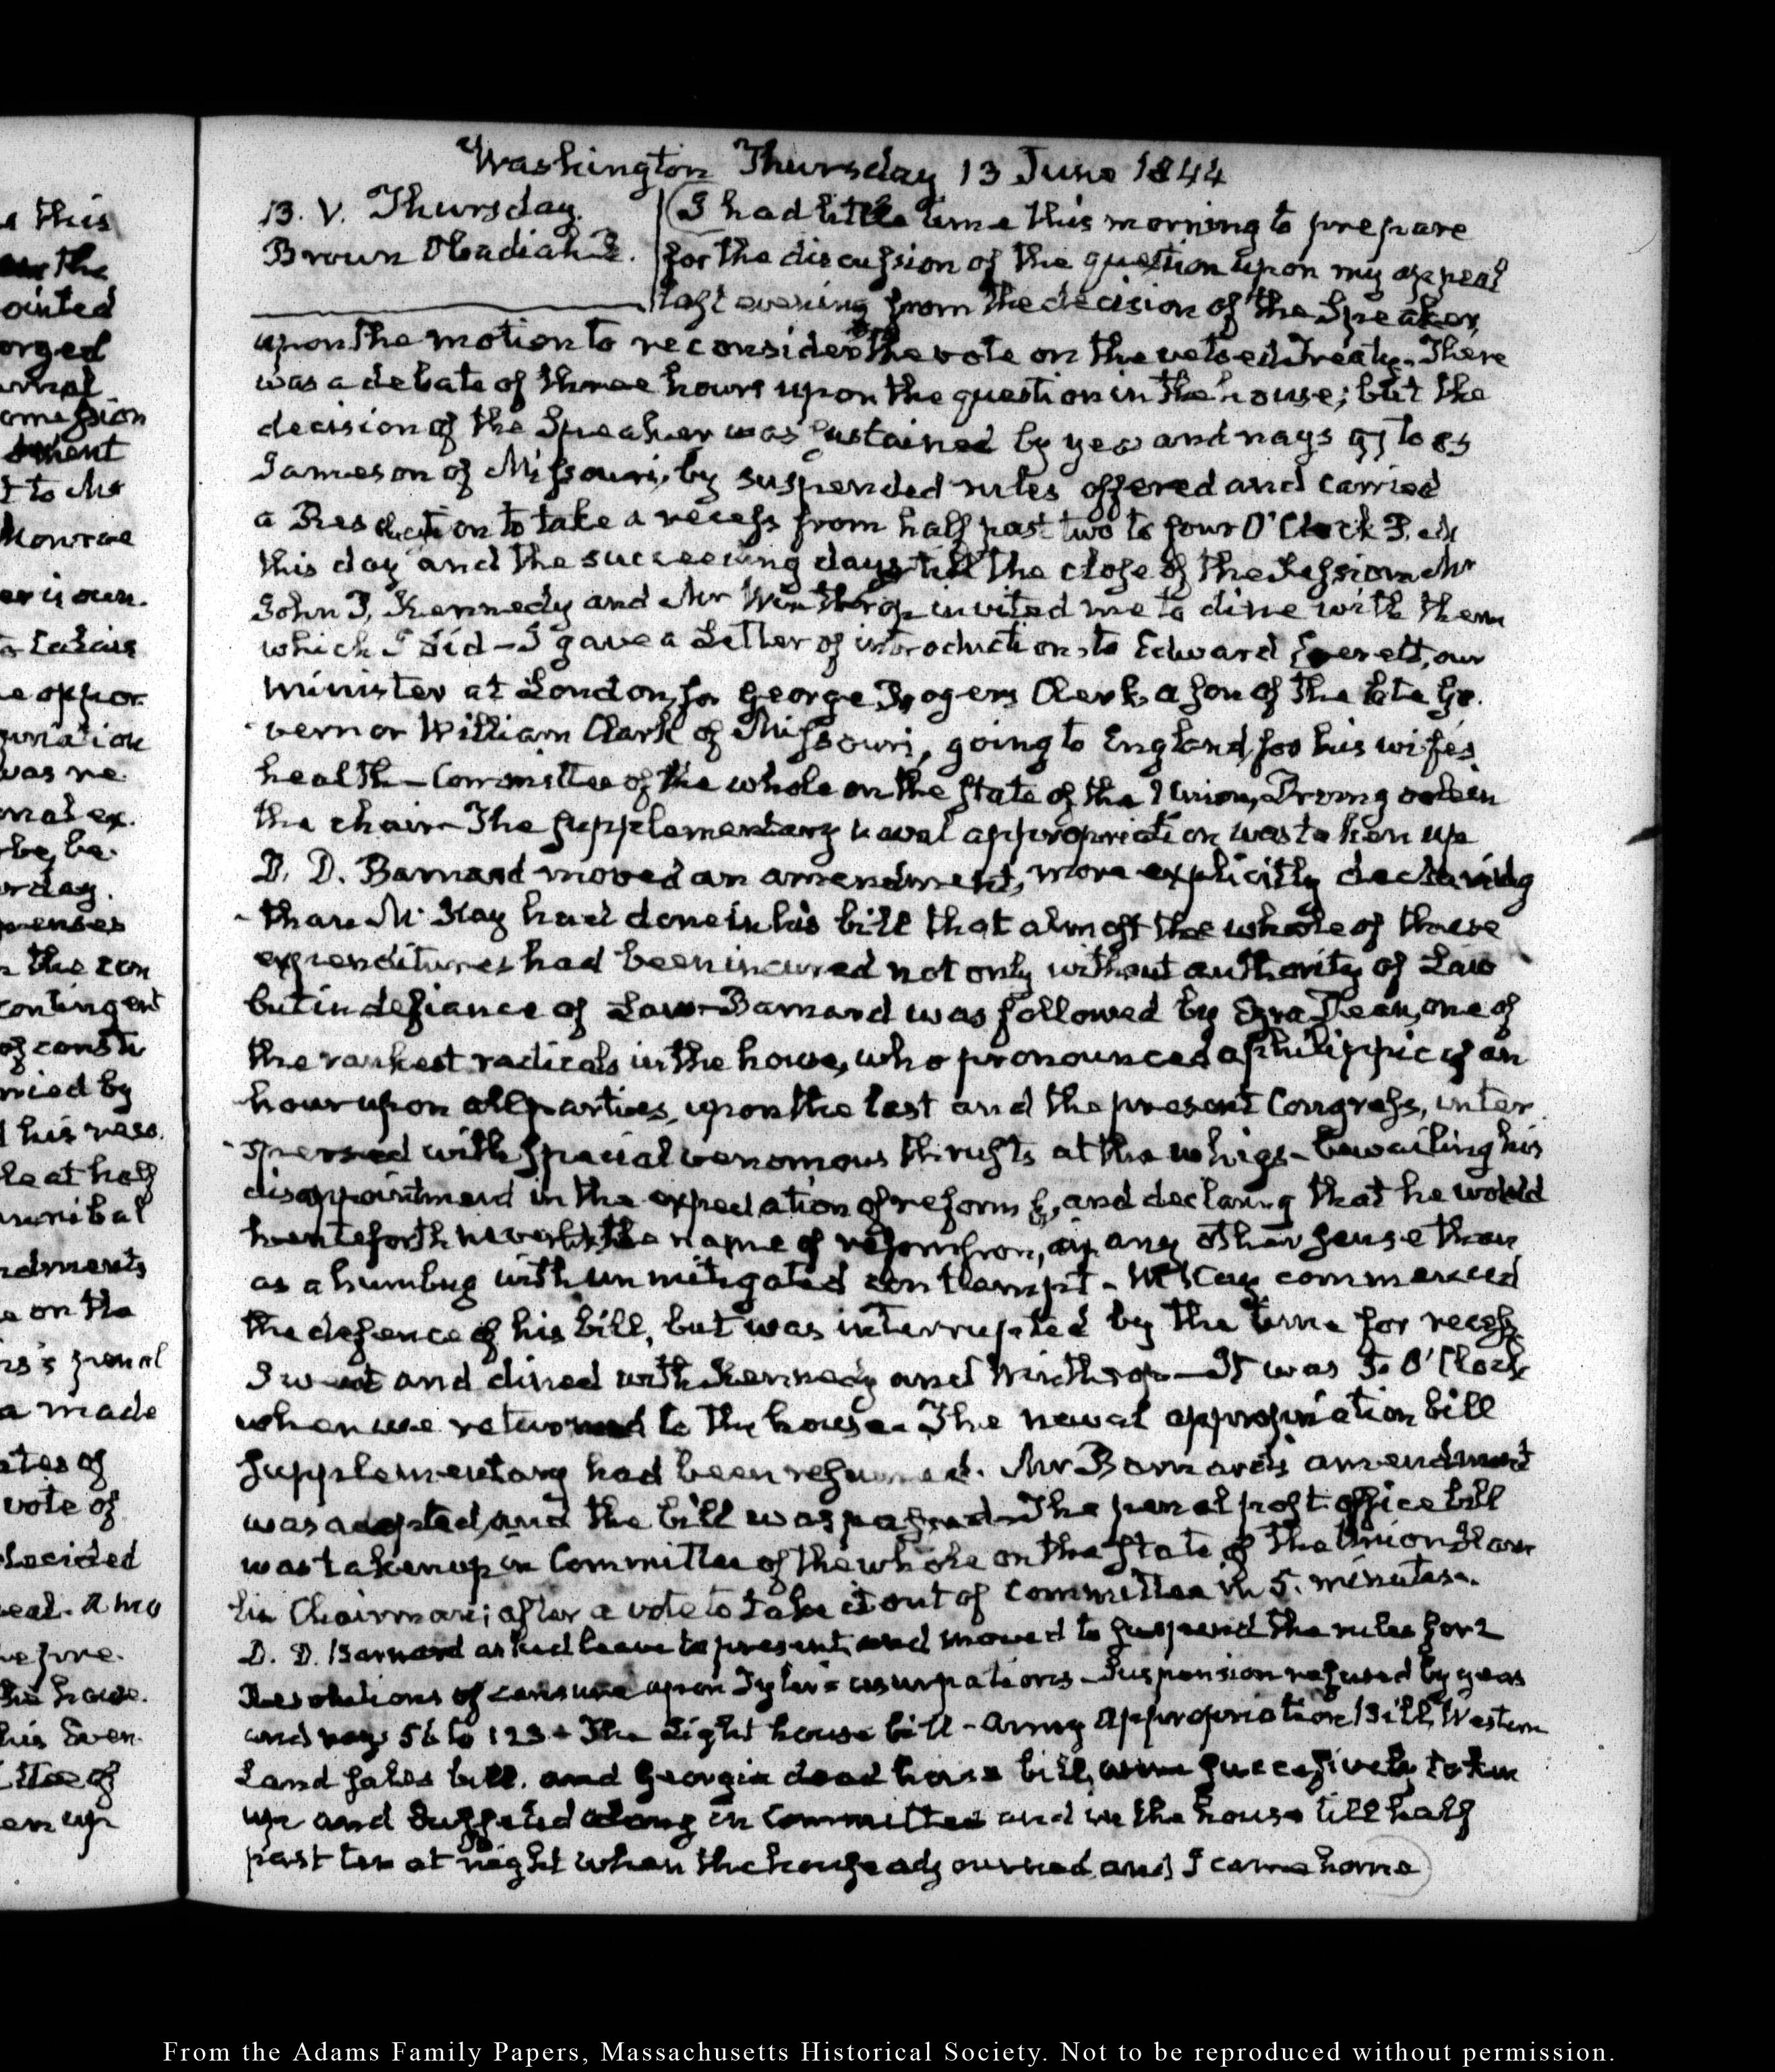 Washington Thursday 13 June 1844
13. V. Thursday.
Brown Obadiah B.
I had little time this morning to prepare
for the discussion of the question upon my appeal
last evening from the decision of the Speaker,
upon the motion to reconsider the vote on the vetoed Treaty. There
was a debate of three hours upon the question in the house; but the
decision of the Speaker was sustained by yeas and nays to
Jameson of Missouri, by suspended rules offered and carried
a Resolution to take a recess from half past two to four O'Clock P.M
this day and the succeeding days till the close of the Session Mr
John P. Kennedy and Mr Winthrop invited me to dine with them
which I did — I gave a Letter of introduction to Edward Everett, our
Minister at London, for George Rogers Clark, a son of the late Go-
vernor William Clark of Missouri, going to England for his wife's
health — Committee of the whole on the state of the Union, in
the chair — The supplementary naval appropriation was taken up
D. D. Barnard moved an amendment, more explicitly declaring
than McKay had done in his bill that almost the whole of these
expenditures had been incurred not only without authority of Law
but in defiance of Law — Barnard was followed by Ezra Dean, one of
the rankest radicals in the house, who pronounced a philippic of an
hour upon all parties, upon the last and the present Congress, inter-
spersed with special venomous thrusts at the whigs — bewailing his
disappointment in the expectation of reform &, and declaring that he would
henceforth the name of in any other sense than
as a humbug with unmitigated contempt — McKay commenced
the defence of his bill, but was interrupted by the time for recess
I went and dined with Kennedy and Winthrop — It was 5. O'Clock
when we returned to the house. The naval appropriation bill
supplementary had been resumed. Mr Barnard's amendment
was adopted, and the bill was passed — The post office bill
was taken up in Committee of the whole on the state of the Union Ham-
lin Chairman; after a vote to take it out of Committee in 5. minutes.
D. D. Barnard asked leave to present and moved to suspend the rules for 2
Resolutions of censure upon Tyler's usurpations — Suspension refused by yeas
and nays 56 to 123 — The Light house bill — Army appropriation Bill, Western
Land sales bill. and Georgia dead horse bill, were successively taken
up and along in Committee and in the house till half
past ten at night when the house adjourned and I came home
a this
the
ointed
orged
omession
t to Mr
Monroe
er is own.
e oppor-
was re-
nal ex-
be, be-
rday.
penses
n the con
contingent
of consti
ried by
d his reso.
le at half
annibal
ndments
e on the
rs's penal
a made
ates of
vote of
decided
eal. A mo
efore.
he house.
his Even-
ittee of
en up
From the Adams Family Papers, Massachusetts Historical Society. Not to be reproduced without permission.